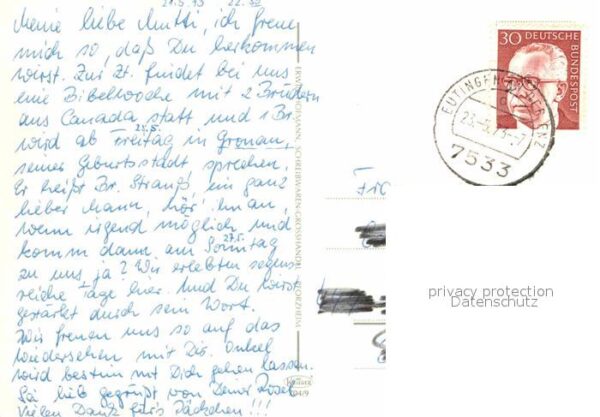 21.5.73 22.30
Meine liebe Mutti, ich freue
mich so, daß Du herkommen
wirst. Zur Zt. findet bei uns
eine Bibelwoche mit 2 Brüdern
aus Canada statt und 1 Br.
wird ab Freitag in Gronau,
25.5.
seiner Geburtsstadt sprechen.
Er heißt Br. Strauß, ein ganz
lieber Mann, hör' ihn an,
wenn irgend möglich und
komm dann am Sonntag
27.5.
zu uns ja? Wir erlebten segens
reiche Tage hier und Du wirst
gestärkt durch sein Wort.
Wir freuen uns so auf das
Wiedersehen mit Dir. Onkel
wird bestimmt mit Dich gehen lassen.
Sei lieb gegrüßt von Deiner Rosel
Vielen Dank für's Päckchen!!!
SCHREIBWAREN-GROSSHANDEL PFORZHEIM
30 DEUTSCHE
BUNDESPOST
EUTINGEN
ENZ
7533
privacy protection
Datenschutz